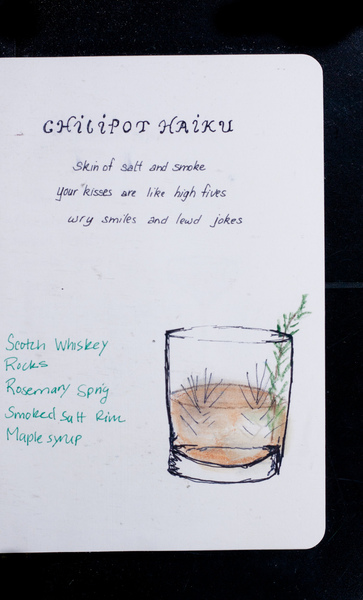 CHiLiPOT HAiKU
skin of salt and smoke
your kisses are like high fives
wry smiles and lewd jokes
Scotch Whiskey
Rocks
Rosemary Sprig
Smoked Salt Rim
Maple syrup